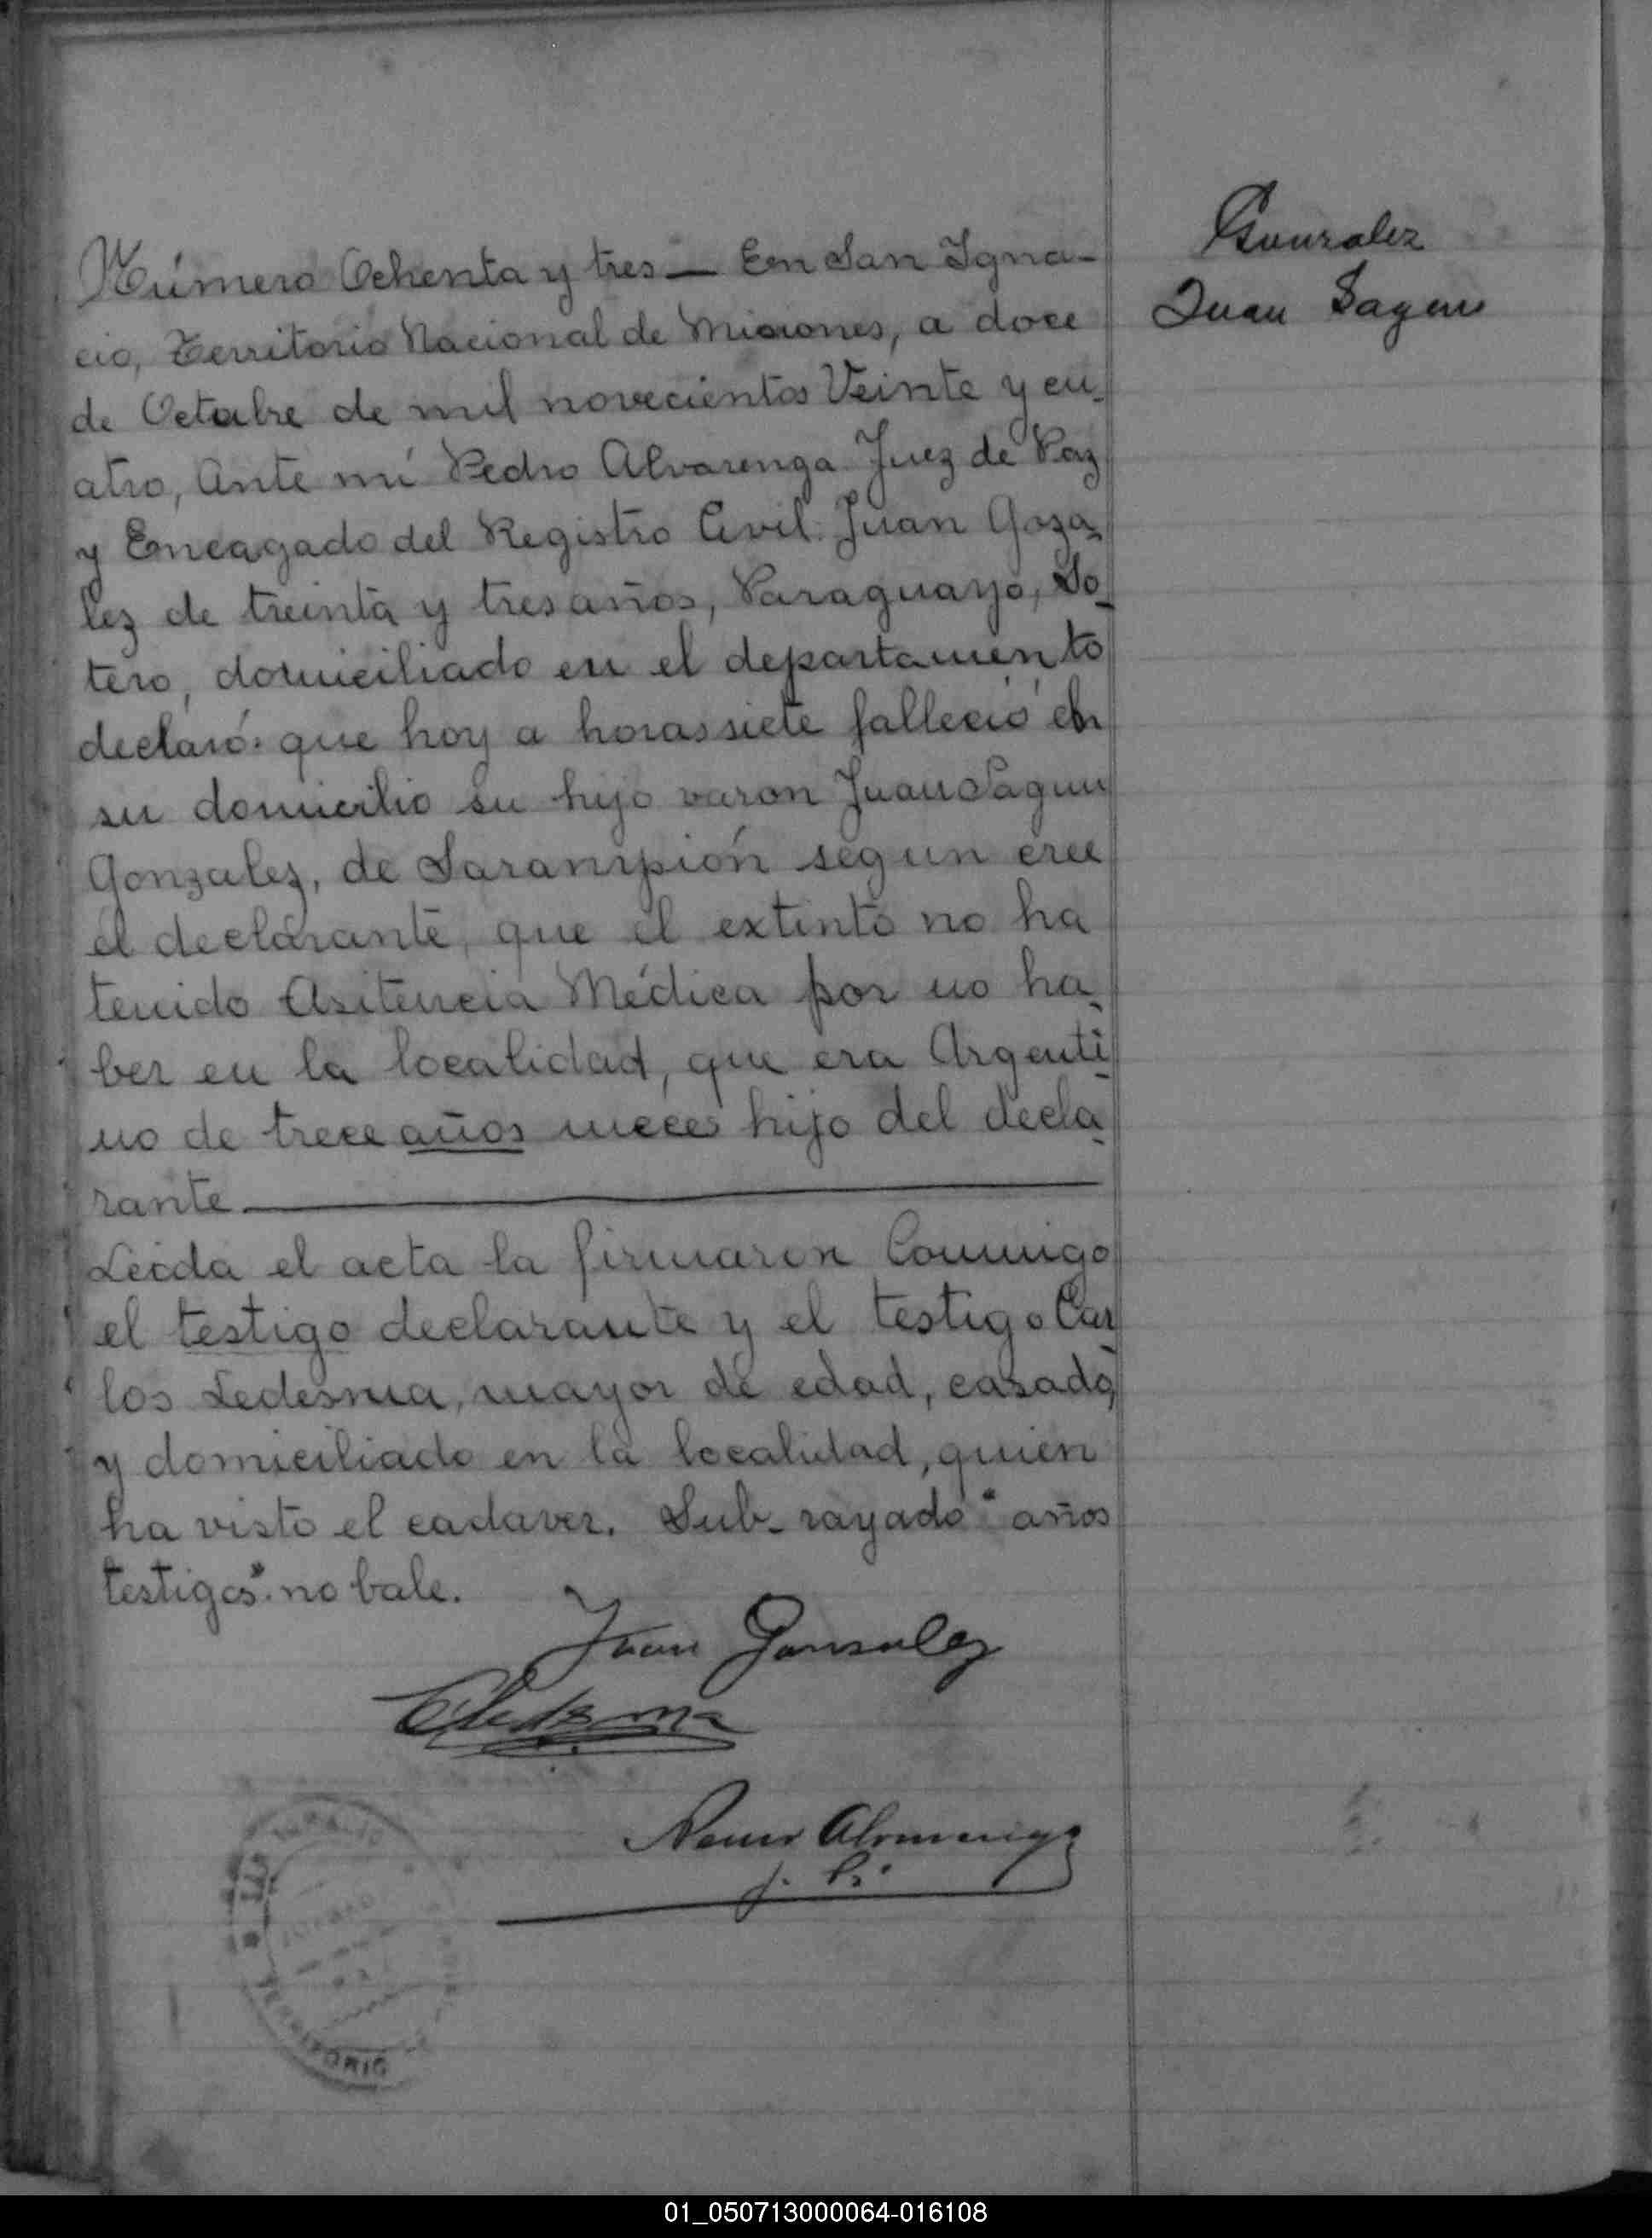 Número Ochenta y tres — En San Igna-
cio, Territorio Nacional de Misiones, a doce
de Octubre de mil novecientos Veinte y cu-
atro, Ante mí Pedro Alvarenga Juez de Paz
y Encagado del Registro Civil: Juan Goza-
lez de treinta y tres años, Paraguayo, So-
tero, domiciliado en el departamento
declaró: que hoy a horas siete falleció en
su domicilio su hijo varon Juan Sagun
Gonzalez, de Sarampión segun cree
el declarante, que el extinto no ha
tenido Asitencia Médica por no ha-
ber en la localidad, que era Argenti-
no de trece años meces hijo del decla-
rante
Leida el acta la firmaron Conmigo
el testigo declarante y el testigo Car-
los Ledesma, mayor de edad, casado,
y domiciliado en la localidad, quien
ha visto el cadaver. Sub-rayado "años
testigos" no bale.
Juan Gonsalez
CLedesma
Pedro Alvarenga
Gonzalez
Juan Sagun
TERRITORIO
01_050713000064-016108